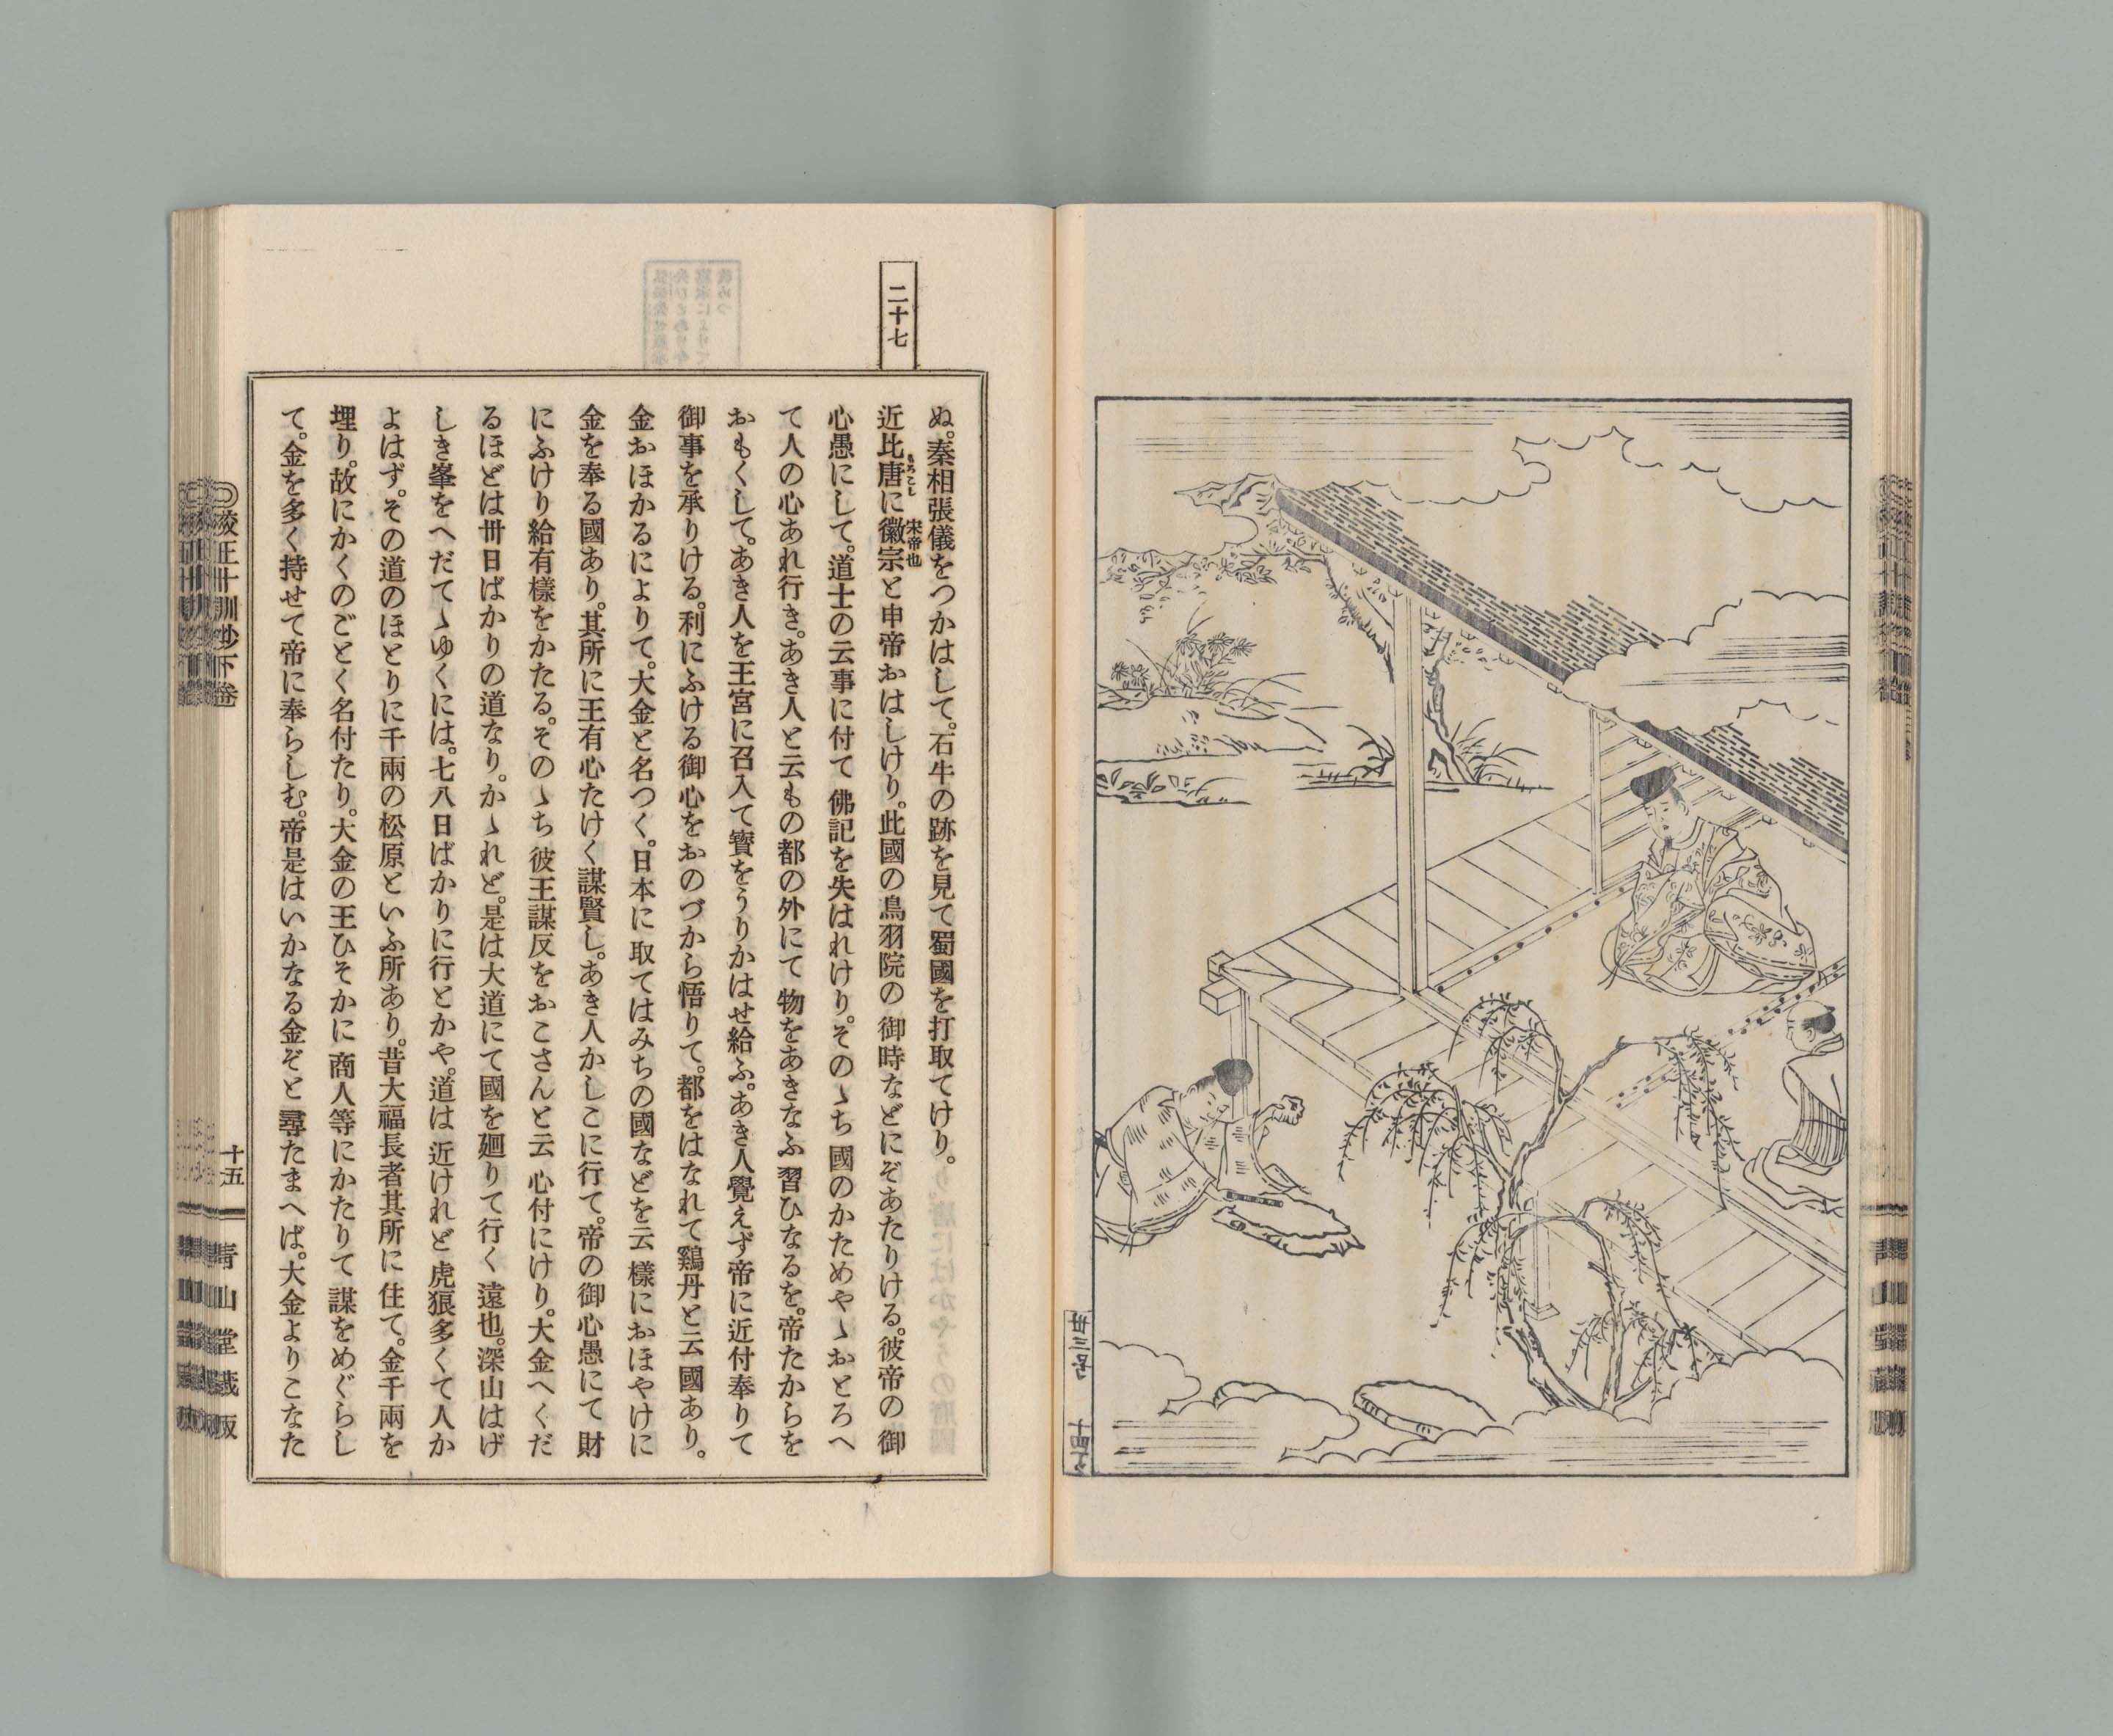 二十七
ぬ。秦相張儀をつかはして。石牛の跡を見て蜀國を打取てけり。
近比唐に徽宗と申帝おはしけり。此國の鳥羽院の御時などにぞあたりける。彼帝の御
もろこし
宋帝也
心愚にして。道士の云事に付て佛記を失はれけり。そのゝち國のかためやゝおとろへ
て人の心あれ行き。あき人と云もの都の外にて物をあきなふ習ひなるを。帝たからを
おもくして。あき人を王宮に召入て寳をうりかはせ給ふ。あき人覺えず帝に近付奉りて
御事を承りける。利にふける御心をおのづから悟りて。都をはなれて鷄丹と云國あり。
金おほかるによりて。大金と名つく。日本に取てはみちの國などを云樣におほやけに
金を奉る國あり。其所に王有心たけく謀賢し。あき人かしこに行て。帝の御心愚にて財
にふけり給有樣をかたる。そのゝち彼王謀反をおこさんと云心付にけり。大金へくだ
るほどは卅日ばかりの道なり。かゝれど。是は大道にて國を廻りて行く遠也。深山はげ
しき峯をへだてゝゆくには。七八日ばかりに行とかや。道は近けれど虎狼多くて人か
よはず。その道のほとりに千兩の松原といふ所あり。昔大福長者其所に住て。金千兩を
埋り。故にかくのごとく名付たり。大金の王ひそかに商人等にかたりて謀をめぐらし
て。金を多く持せて帝に奉らしむ。帝是はいかなる金ぞと尋たまへば。大金よりこなた
校正十訓抄下卷
十五
青山堂藏版